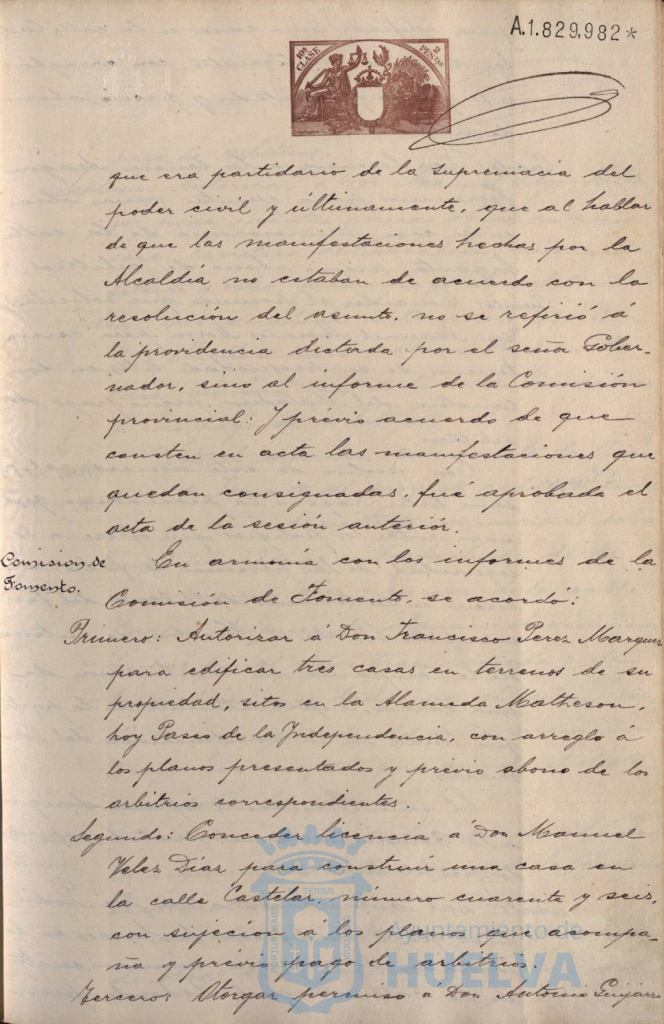 A.1.829,982*
10ª CLASE
2 PESTAS
que era partidario de la supremacia del
poder civil y últimamente, que al hablar
de que las manifestaciones hechas por la
Alcaldía no estaban de acuerdo con la
resolución del asunto, no se refirió á
la providencia dictada por el señor Gober-
nador, sino al informe de la Comisión
provincial: Y prévio acuerdo de que
consten en acta las manifestaciones que
quedan consignadas, fué aprobada el
acta de la sesión anteriór.
Comision de
Fomento.
En armonía con los informes de la
Comisión de Fomento, se acordó:
Primero: Autorizar á Don Francisco Perez Marquez
para edificar tres casas en terrenos de su
propiedad, sitos en la Alameda Matheson,
hoy Paseo de la Independencia, con arreglo á
los planos presentados y prévio abono de los
arbitrios correspondientes.
Segundo: Conceder licencia á Don Manuel
Velez Díaz para construir una casa en
la calle Castelar, número cuarenta y seis,
con sujecion á los planos que acompa-
ña y prévio pago de arbitrios.
Tercero: Otorgar permiso á Don Antonio Guijarro
Ayuntamiento de
HUELVA